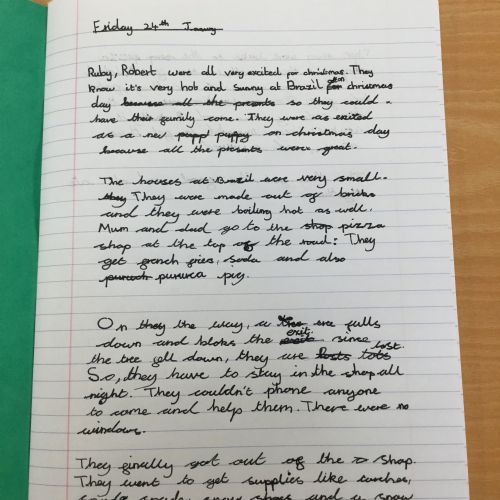 Friday 24th
Ruby, Robert were all very excited for christmas. They
know it's very hot and sunny at Brazil on christmas
day because all the presents so they could
have their family come. They were as exited
as a new pupp puppy on christmas day
because all the presents were great.
The houses at Brazil were very small.
they They were made out of bricks
and they were boiling hot as well.
Mum and dad go to the shop pizza
shop at the top of the road: They
get french fries, soda and also
pig.
On they the way, a tree falls
down and bloks the exit. since
the tree fell down, they are lost.
So, they have to stay in the shop all
night. They couldn't phone anyone
to come and help them. There were no
windows.
They finally got out of the shop.
They went to get supplies like torches,
snow